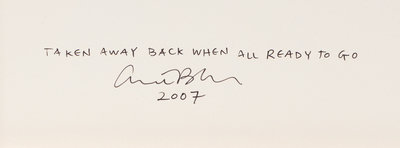 TAKEN AWAY BACK WHEN ALL READY TO GO
2007